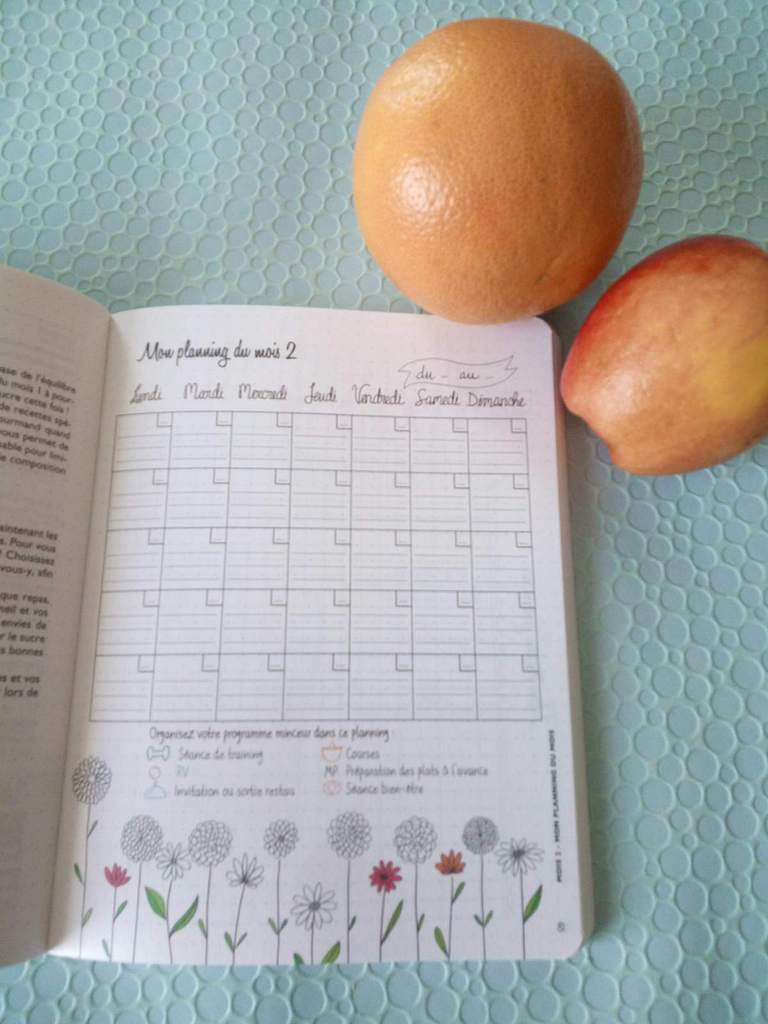 ase de l'équilibre
du mois ! à pour-
ucre cette fois !
de recettes spé-
ourmand quand
vous permet de
sable pour limi-
e composition
aintenant les
s. Pour vous
? Choisissez
vous-y, afin
que repas,
meil et vos
envies de
r le sucre
s bonnes
s et vos
lors de
Mon planning du mois 2
du - au -
Lundi Mardi Mercredi Jeudi Vendredi Samedi Dimanche
Organisez votre programme minceur dans ce planning :
Séance de training
RV
Invitation ou sortie restau
Courses
MP Préparation des plats à l'avance
Séance bien-être
MOIS 2 - MON PLANNING DU MOIS